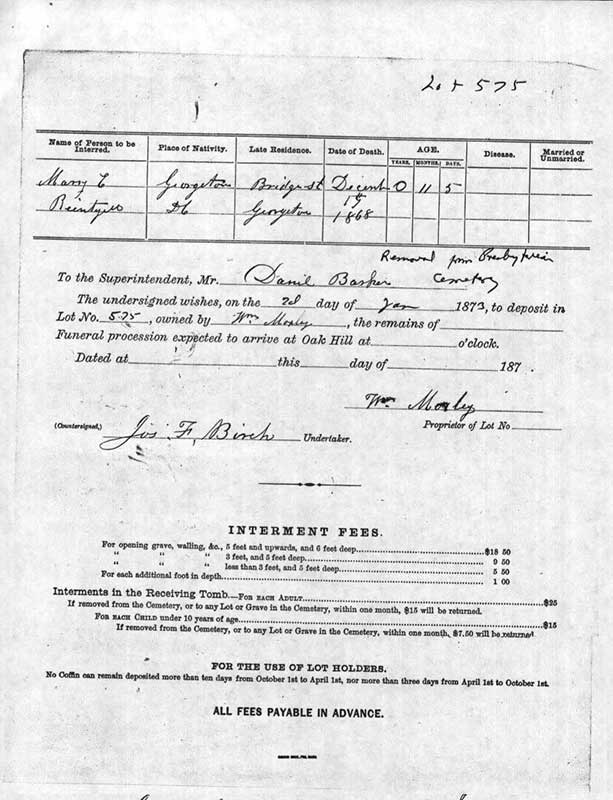 Lot 575
Name of Person to be Interred. Place of Nativity. Late Residence. Date of Death. AGE. Disease. Married or Unmarried.
YEARS. MONTHS. DAYS.
Mary E Georgeton Bridge st Decemb 0 11 5
DC Georgeton 1868
Removal from Presbyterian
To the Superintendent, Mr. Daniel Barker Cemetery
The undersigned wishes, on the 2d day of Jan 1873, to deposit in
Lot No. 575, owned by Wm Moxley, the remains of
Funeral procession expected to arrive at Oak Hill at o'clock.
Dated at this day of 187
Wm Moxley
(Countersigned,) Jos. F. Birch Undertaker. Proprietor of Lot No
INTERMENT FEES.
For opening grave, walling, &c., 5 feet and upwards, and 6 feet deep $18 50
" " " 3 feet, and 5 feet deep 9 50
" " " less than 3 feet, and 5 feet deep 5 50
For each additional foot in depth 1 00
Interments in the Receiving Tomb.—FOR EACH ADULT $25
If removed from the Cemetery, or to any Lot or Grave in the Cemetery, within one month, $15 will be returned.
FOR EACH CHILD under 10 years of age $15
If removed from the Cemetery, or to any Lot or Grave in the Cemetery, within one month, $7.50 will be returned.
FOR THE USE OF LOT HOLDERS.
No Coffin can remain deposited more than ten days from October 1st to April 1st, nor more than three days from April 1st to October 1st.
ALL FEES PAYABLE IN ADVANCE.